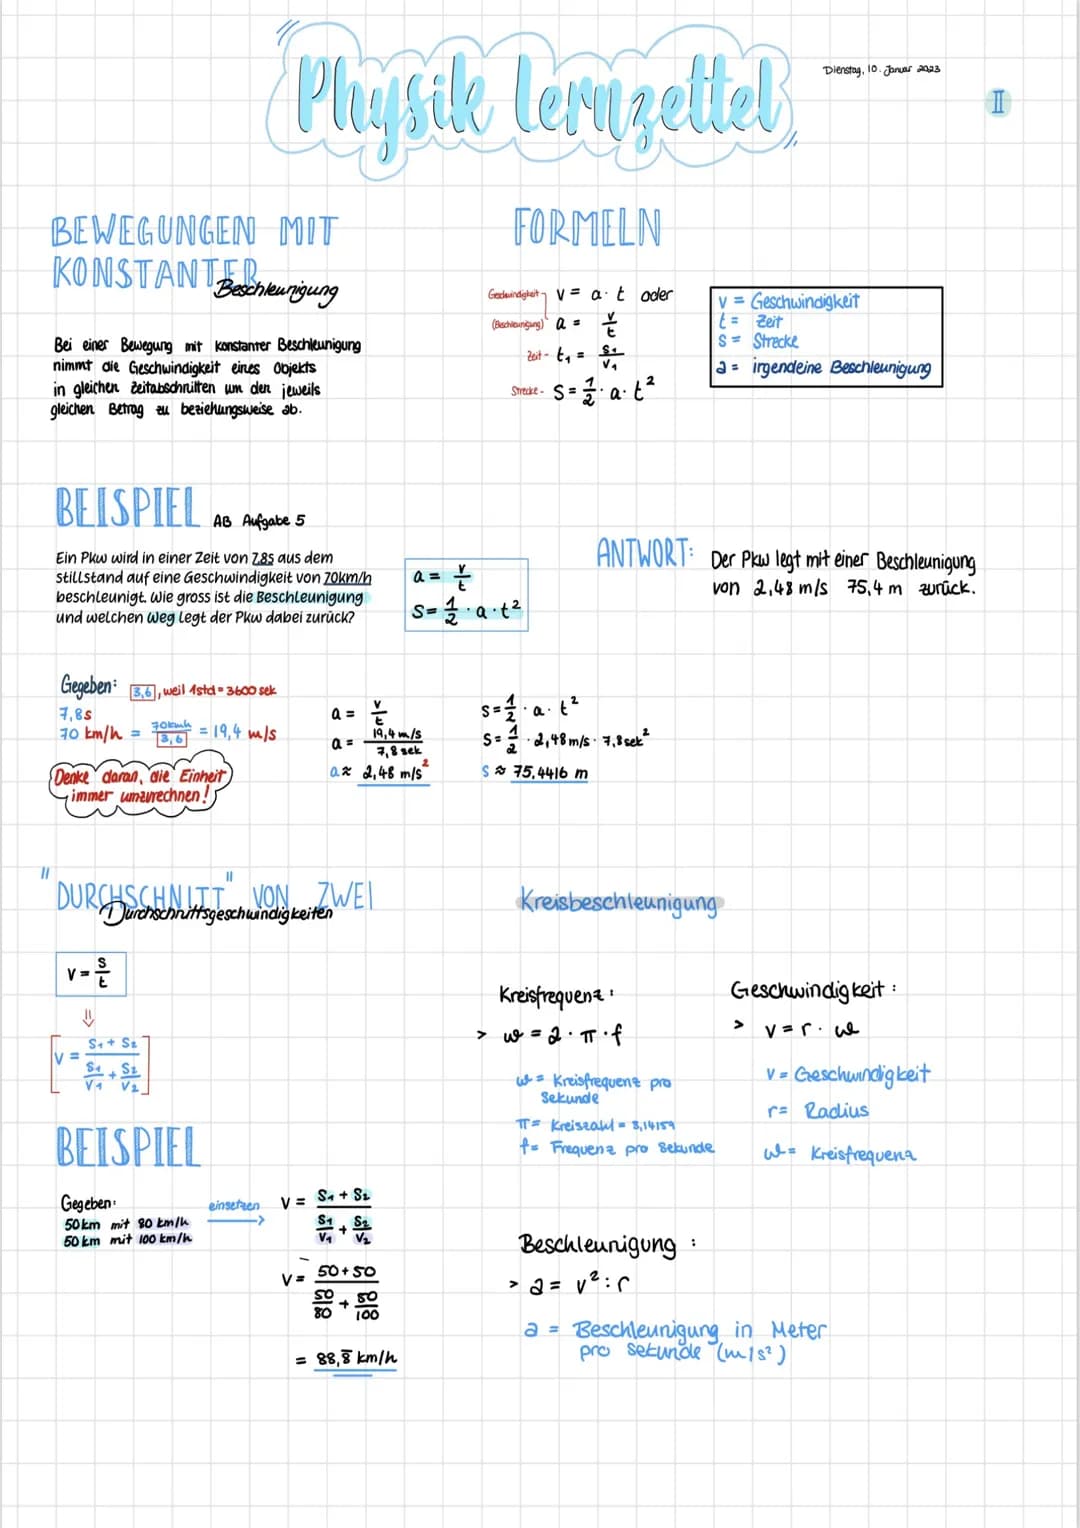 Physik Lernzettel
Dienstag, 10. Januar 2023
II
BEWEGUNGEN MIT
KONSTANTER
Beschleunigung
Bei einer Bewegung mit konstanter Beschleunigung
nimmt die Geschwindigkeit eines Objekts
in gleichen Zeitabschnitten um den jeweils
gleichen Betrag zu beziehungsweise ab.
FORMELN
Geschwindigkeit v = a · t oder
(Beschleunigung) a = v/t
Zeit - t₁ = s₁/v₁
Strecke - s = 1/2 · a · t²
v = Geschwindigkeit
t = Zeit
s = Strecke
a = irgendeine Beschleunigung
BEISPIEL AB Aufgabe 5
Ein Pkw wird in einer Zeit von 7,8s aus dem
stillstand auf eine Geschwindigkeit von 70km/h
beschleunigt. Wie gross ist die Beschleunigung
und welchen Weg legt der Pkw dabei zurück?
a = v/t
s = 1/2 · a · t²
ANTWORT: Der Pkw legt mit einer Beschleunigung
von 2,48 m/s 75,4 m zurück.
Gegeben: 3,6, weil 1std = 3600 sek
7,8s
70 km/h = 70km/h / 3,6 = 19,4 m/s
Denke daran, die Einheit
immer umzurechnen!
a = v/t
a = 19,4 m/s / 7,8 sek
a ≈ 2,48 m/s²
s = 1/2 · a · t²
s = 1/2 · 2,48 m/s · 7,8 sek²
s ≈ 75,4416 m
"DURCHSCHNITT" VON ZWEI
Durchschnittsgeschwindigkeiten
v = s/t
⇓
[v = (s₁ + s₂) / (s₁/v₁ + s₂/v₂)]
BEISPIEL
Gegeben:
50 km mit 80 km/h
50 km mit 100 km/h
einsetzen
v = (s₁ + s₂) / (s₁/v₁ + s₂/v₂)
v = (50 + 50) / (50/80 + 50/100)
= 88,8̅ km/h
Kreisbeschleunigung
Kreisfrequenz:
> ω = 2 · π · f
ω = Kreisfrequenz pro
Sekunde
π = Kreiszahl = 3,14159
f = Frequenz pro Sekunde
Geschwindigkeit:
> v = r · ω
v = Geschwindigkeit
r = Radius
ω = Kreisfrequenz
Beschleunigung:
> a = v² : r
a = Beschleunigung in Meter
pro Sekunde (m/s²)